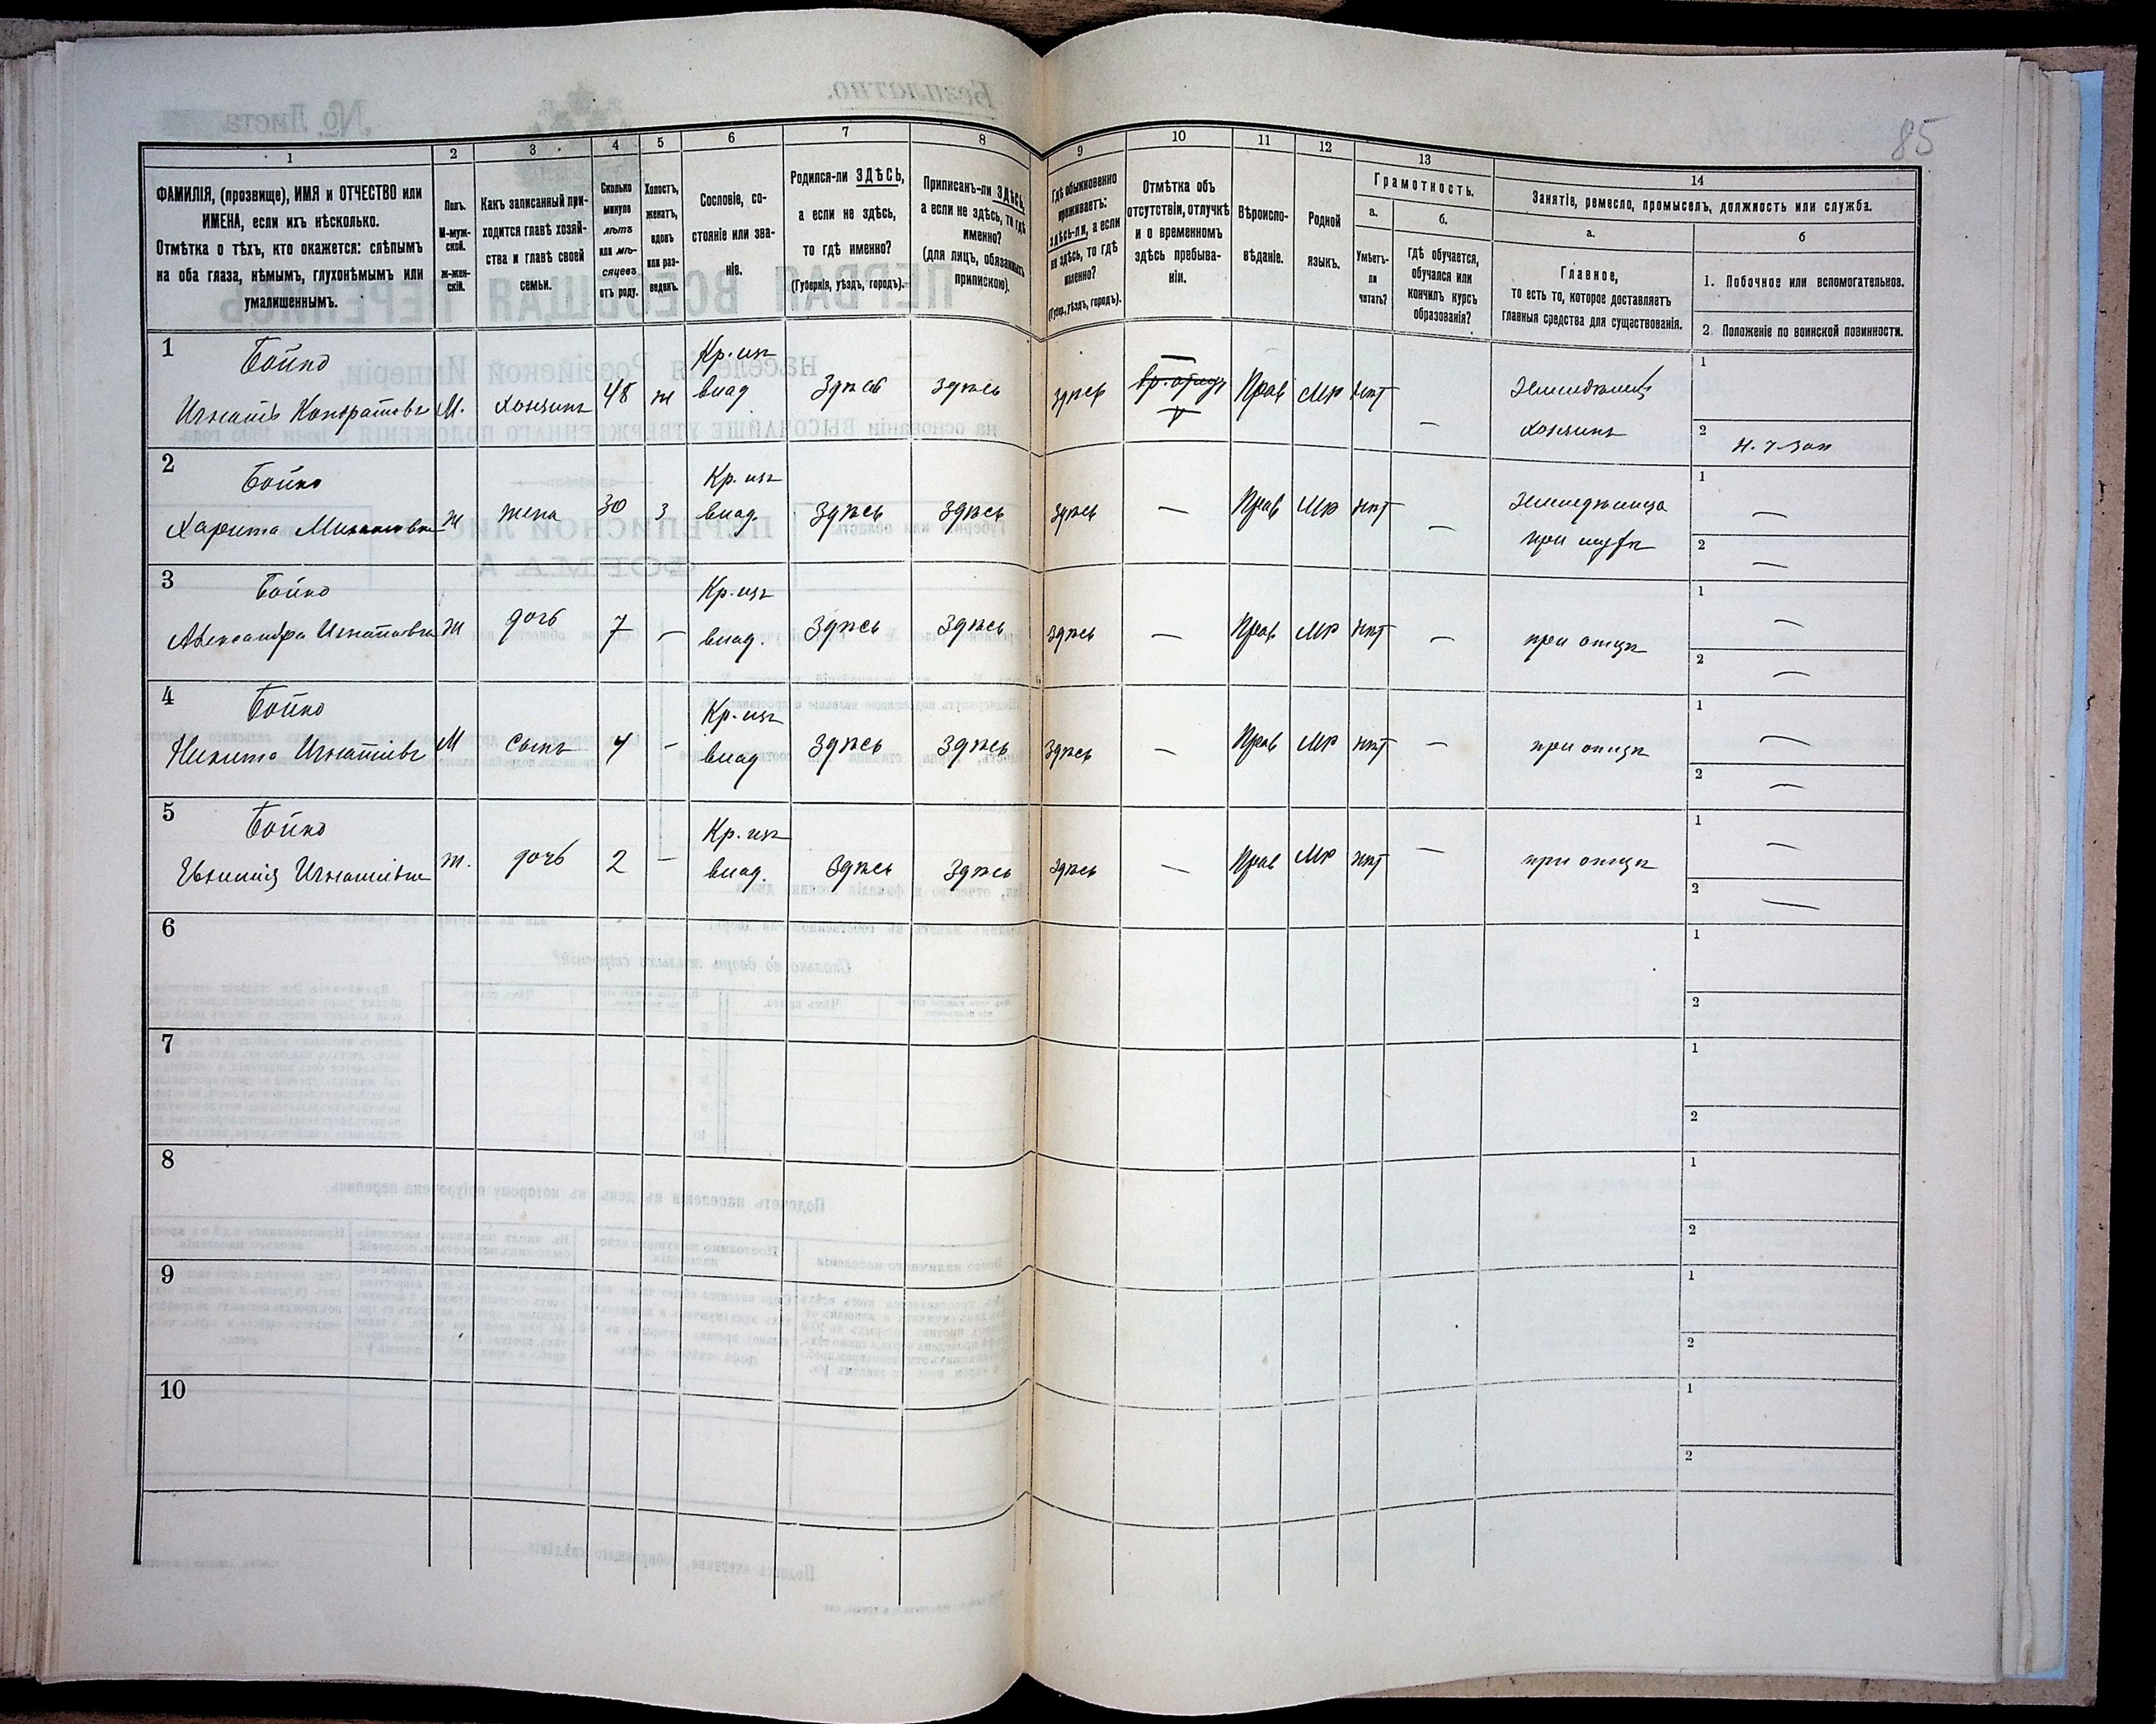 85
1
2
3
4
5
6
7
8
9
10
11
12
13
14
ФАМИЛІЯ, (прозвище), ИМЯ и ОТЧЕСТВО или
ИМЕНА, если ихъ нѣсколько.
Отмѣтка о тѣхъ, кто окажется: слѣпымъ
на оба глаза, нѣмымъ, глухонѣмымъ или
умалишеннымъ.
Полъ.
М-муж-
ской.
Ж-жен-
скій.
Какъ записанный при-
ходится главѣ хозяй-
ства и главѣ своей
семьи.
Сколько
минуло
лѣтъ
или мѣ-
сяцевъ
отъ роду.
Холостъ,
женатъ,
вдовъ
или раз-
веденъ.
Сословіе, со-
стояніе или зва-
ніе.
Родился-ли ЗДѢСЬ,
а если не здѣсь,
то гдѣ именно?
(Губернія, уѣздъ, городъ).
Приписанъ-ли ЗДѢСЬ,
а если не здѣсь, то гдѣ
именно?
(для лицъ, обязанныхъ
припискою).
Гдѣ обыкновенно
проживаетъ:
здѣсь-ли, а если
не здѣсь, то гдѣ
именно?
(Губер., уѣздъ, городъ).
Отмѣтка объ
отсутствіи, отлучкѣ
и о временномъ
здѣсь пребыва-
ніи.
Вѣроиспо-
вѣданіе.
Родной
языкъ.
Грамотность.
а.
Умѣетъ-
ли
читать?
б.
Гдѣ обучается,
обучался или
кончилъ курсъ
образованія?
Занятіе, ремесло, промыселъ, должность или служба.
а.
Главное,
то есть то, которое доставляетъ
главныя средства для существованія.
б
1. Побочное или вспомогательное.
2. Положеніе по воинской повинности.
1
Бойко
Игнатъ Кондратовъ
М.
Хозяинъ
48
ж
Кр. изъ
влад
Здѣсь
здѣсь
здѣсь
Прав
Мр
нѣт
Земледѣлецъ
Хозяинъ
1
2
2
Бойко
Харита
ж
жена
30
з
Кр. изъ
влад.
Здѣсь
Здѣсь
здѣсь
—
Прав
Мр
нѣт
—
при мужѣ
1 —
2 —
3
Бойко
Александра Игнатовна
ж
дочь
7
—
Кр. изъ
влад.
Здѣсь
Здѣсь
здѣсь
—
Прав
Мр
нѣт
—
при отцѣ
1 —
2 —
4
Бойко
Никита Игнатовъ
М
сынъ
4
-
Кр. изъ
влад
Здѣсь
Здѣсь
здѣсь
—
Прав
Мр
нѣт
—
при отцѣ
1 —
2 —
5
Бойко
ж.
дочь
2
—
Кр. изъ
влад.
Здѣсь
Здѣсь
здѣсь
—
Прав
Мр
нѣт
—
при отцѣ
1 —
2 —
6
1
2
7
1
2
8
1
2
9
1
2
10
1
2